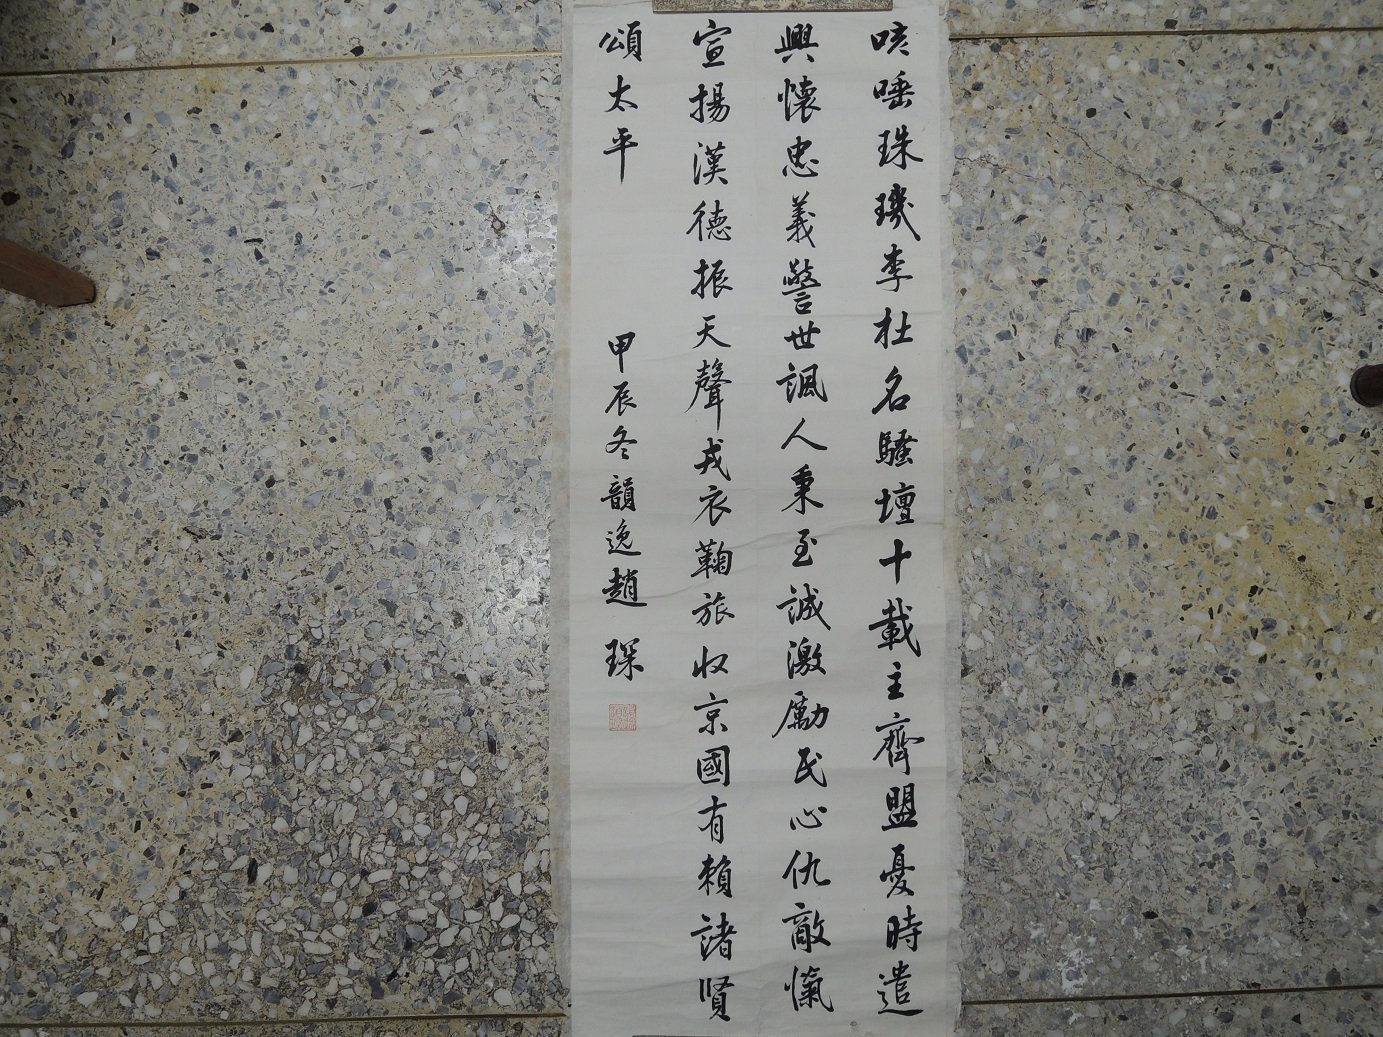 咳唾珠璣李杜名騷壇十載主齊盟憂時遣
興懷忠義警世諷人秉至誠激勵民心仇敵愾
宣揚漢德振天聲戎衣鞠旅收京國有賴諸賢
頌太平
甲辰冬韻逸趙琛